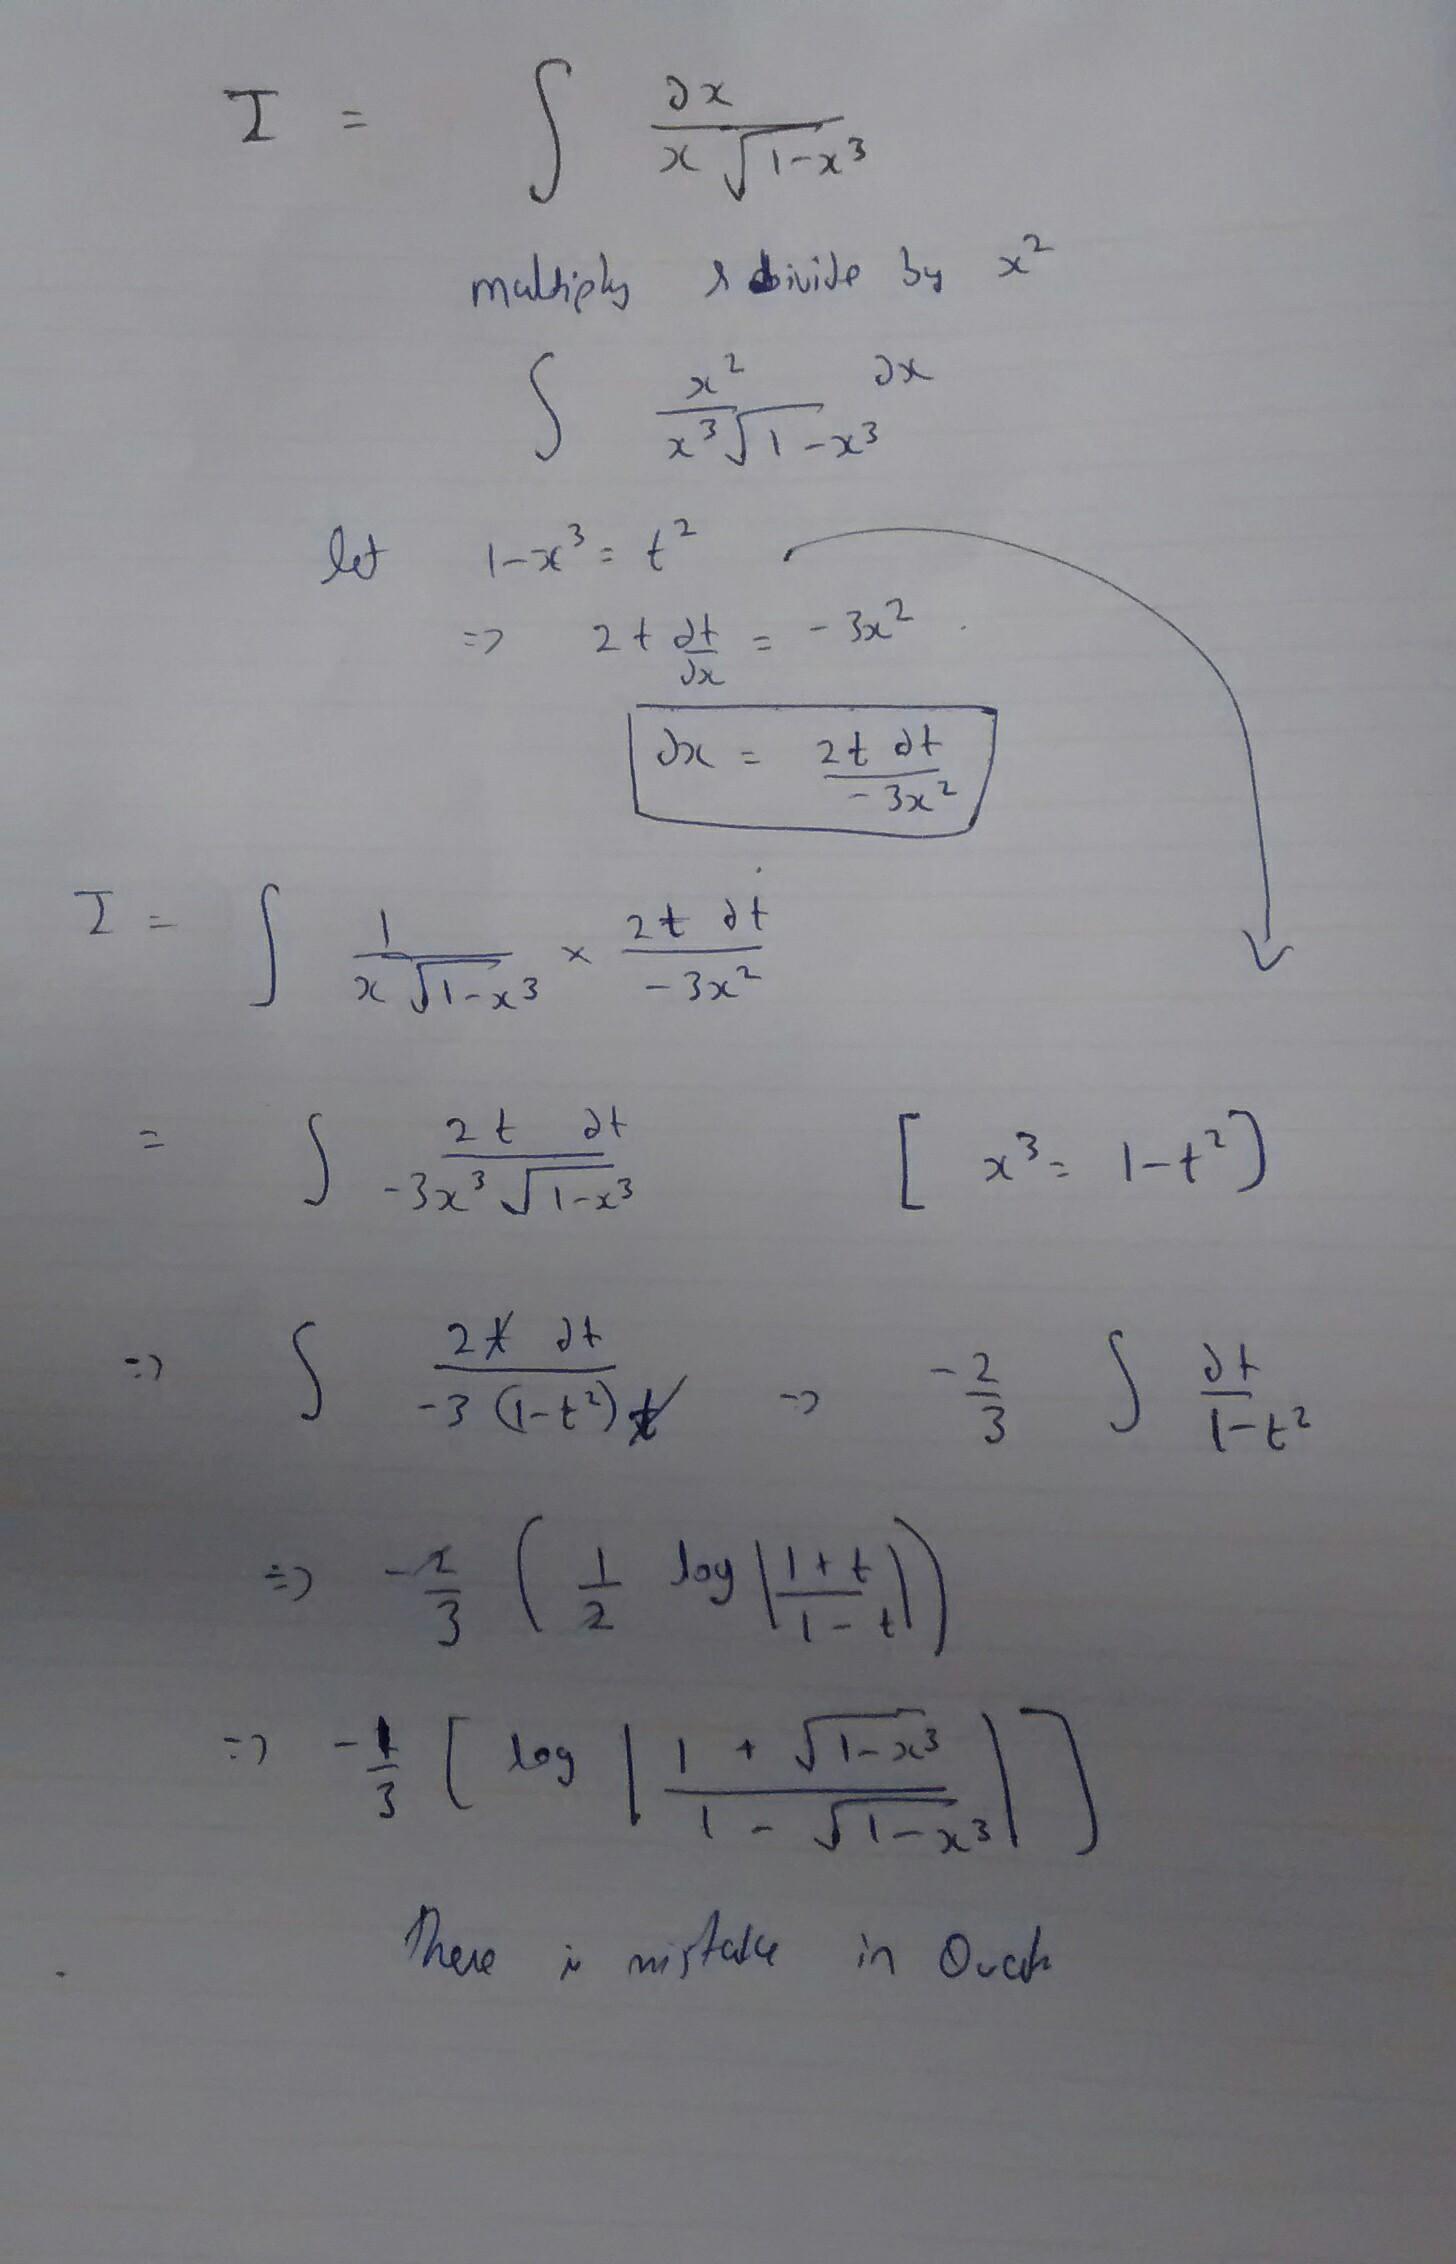 I = ∫ ∂x / x √1-x³
multiply & divide by x²
∫ x² / x³ √1-x³ ∂x
let 1-x³ = t²
=> 2t ∂t/∂x = -3x²
∂x = 2t ∂t / -3x²
I = ∫ 1 / x √1-x³ × 2t ∂t / -3x²
= ∫ 2t ∂t / -3x³ √1-x³ [ x³ = 1-t² ]
=> ∫ 2t ∂t / -3 (1-t²) t => -2/3 ∫ ∂t / 1-t²
=> -2/3 ( 1/2 log | 1+t / 1-t | )
=> -1/3 [ log | 1 + √1-x³ / 1 - √1-x³ | ]
There is mistake in